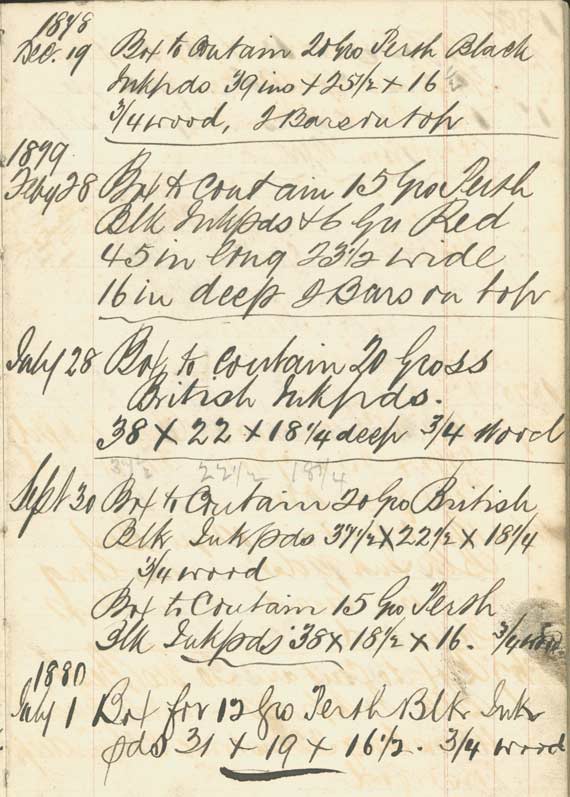 1878
Dec. 19 Box to Contain 20 Gro Perth Black
Inkpds 39 ins x 25 1/2 x 16
3/4 wood, 2 Bars on top
1879
Feby 28 Box to Contain 15 Gro Perth
Blk Inkpds & 6 Gro Red
45 in long 23 1/2 wide
16 in deep 2 Bars on top
July 28 Box to Contain 20 Gross
British Inkpds.
38 x 22 x 18 1/4 deep 3/4 wood
37 1/2 22 1/2 18 1/4
Sept 30 Box to Contain 20 Gro British
Blk Inkpds 37 1/2 x 22 1/2 x 18 1/4
3/4 wood
Box to Contain 15 Gro Perth
Blk Inkpds 38 x 18 1/2 x 16. 3/4 wood
1880
July 1 Box for 12 Gro Perth Blk Ink
pds 31 x 19 x 16 1/2. 3/4 wood